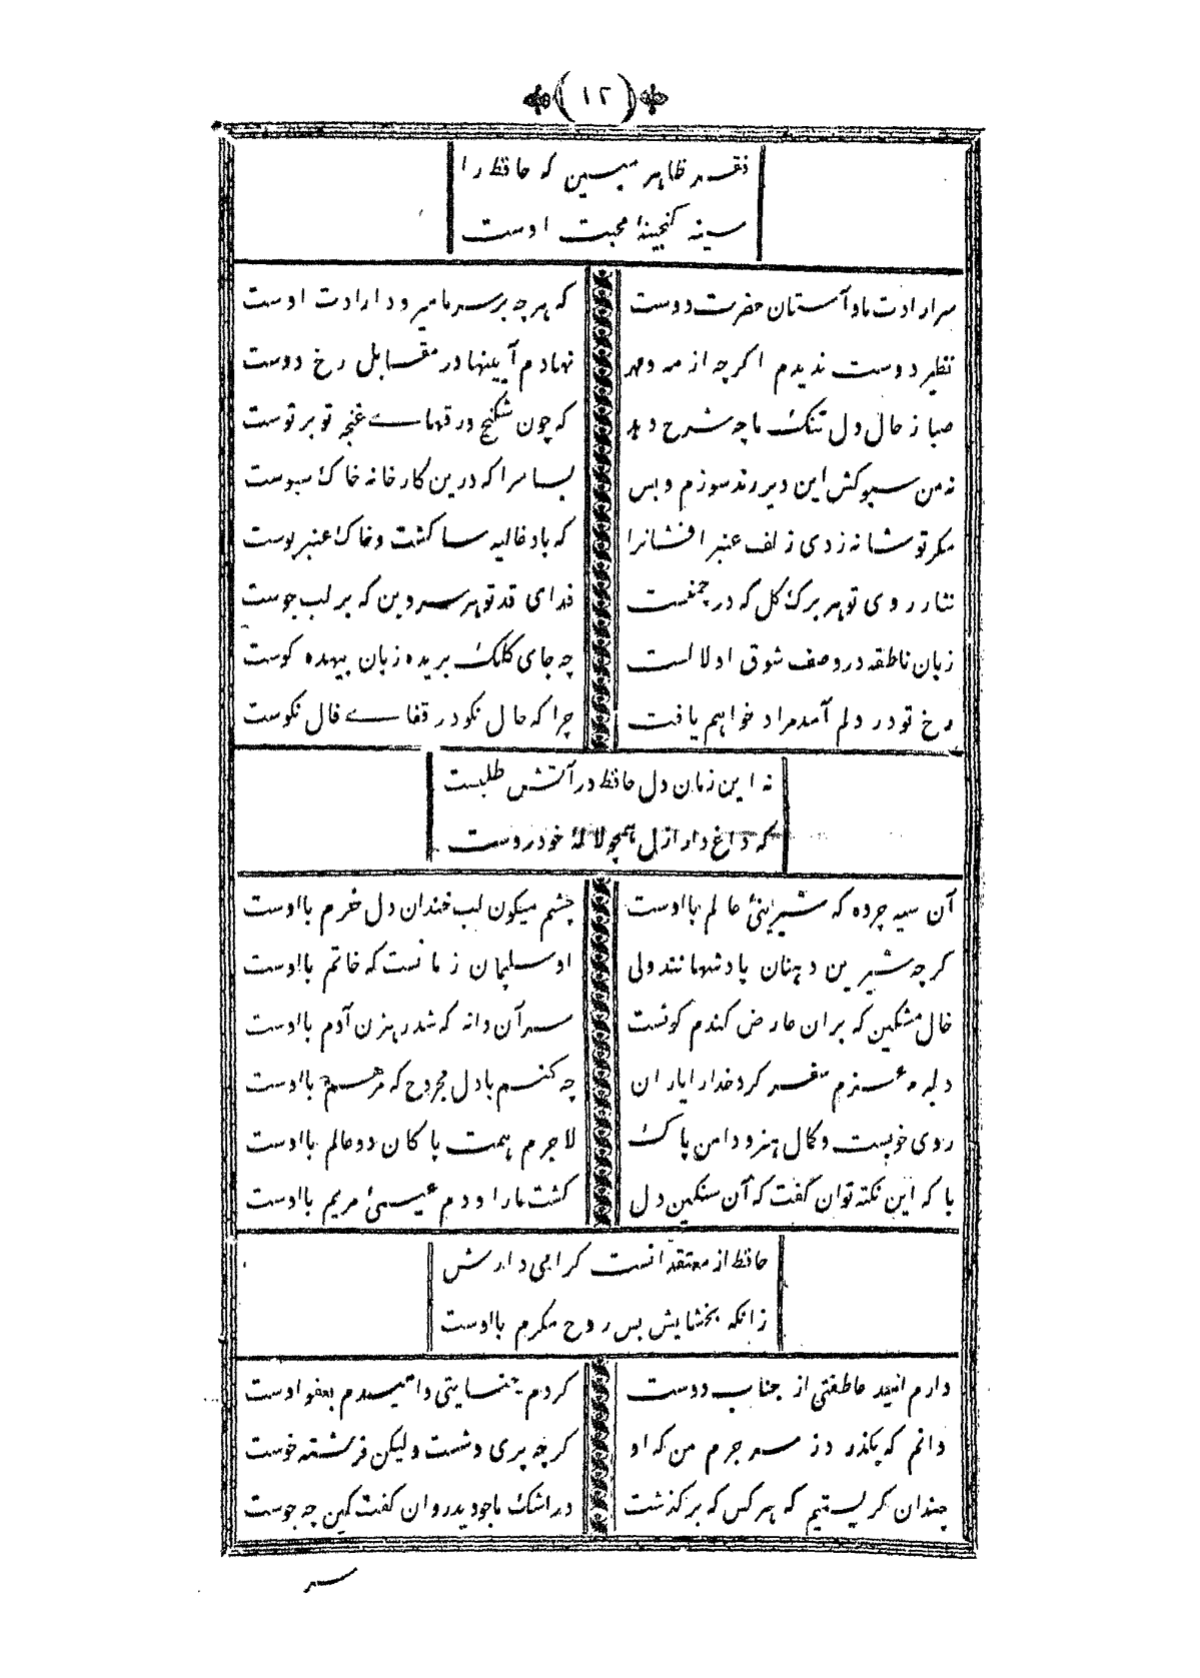 (١٢)
فقر ظاهر مبین که حافظ را
سینه گنجینهٔ محبت اوست
سر ارادت ما و آستان حضرت دوست که هرچه بر سر ما میرود ارادت اوست
نظیر دوست ندیدم اکرچه از مه و مهر نهادم آیینها در مقابل رخ دوست
صبا ز حال دل تنک ما چه شرح دهد که چون شکنج ورقهاے غنچه تو بر توست
نه من سبوکش این دیر رند سوزم و بس بسا سرا که درین کارخانه خاک سبوست
مکر تو شانه زدی زلف عنبر افشانرا که باد غالیه سا کشت و خاک عنبر بوست
نثار روی تو هر برک کل که در چمنست فدای قد تو هر سروبن که بر لب جوست
زبان ناطقه در وصف شوق او لالست چه جای کلک بریده زبان بیهده کوست
رخ تو در دلم آمد مراد خواهم یافت چرا که حال نکو در قفاے فال نکوست
نه این زمان دل حافظ در آتش طلبست
که داغدار ازل همچو لالهٔ خودروست
آن سیه چرده که شیرینیٔ عالم بااوست چشم میکون لب خندان دل خرم بااوست
کرچه شیرین دهنان پادشهانند ولی او سلیمان زمانست که خاتم بااوست
خال مشکین که بران عارض کندم کونست سر آن دانه که شد رهزن آدم بااوست
دلبرم عزم سفر کرد خدا را یاران چه کنم بادل مجروح که مرهم بااوست
روی خوبست و کمال هنر و دامن پاک لاجرم همت پاکان دو عالم بااوست
با که این نکته توان کفت که آن سنکین دل کشت ما را و دم عیسیٔ مریم بااوست
حافظ از معتقدانست کرامی دارش
زانکه بخشایش بس روح مکرم بااوست
دارم امید عاطفتی از جناب دوست کردم جنایتی و امیدم بعفو اوست
دانم که بکذرد ز سر جرم من که او کرچه پری وشست ولیکن فرشته خوست
چندان کریستیم که هرکس که برکذشت در اشک ما چو دید روان کفت کین چه جوست
سر